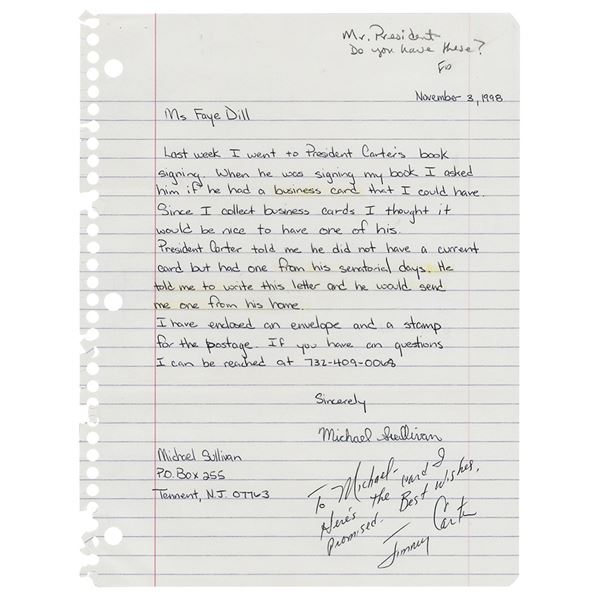 Mr. President
Do you have these?
FD
November 3, 1998
Ms Faye Dill
Last week I went to President Carter's book
signing. When he was signing my book I asked
him if he had a business card that I could have.
Since I collect business cards I thought it
would be nice to have one of his.
President Carter told me he did not have a current
card but had one from his senatorial days. He
told me to write this letter and he would send
me one from his home.
I have enclosed an envelope and a stamp
for the postage. If you have an questions
I can be reached at 732-409-0068
Sincerely
Michael Sullivan
Michael Sullivan
P.O. Box 255
Tennent, N.J. 07763
To Michael-
Here's the card I
promised. Best Wishes,
Jimmy Carter